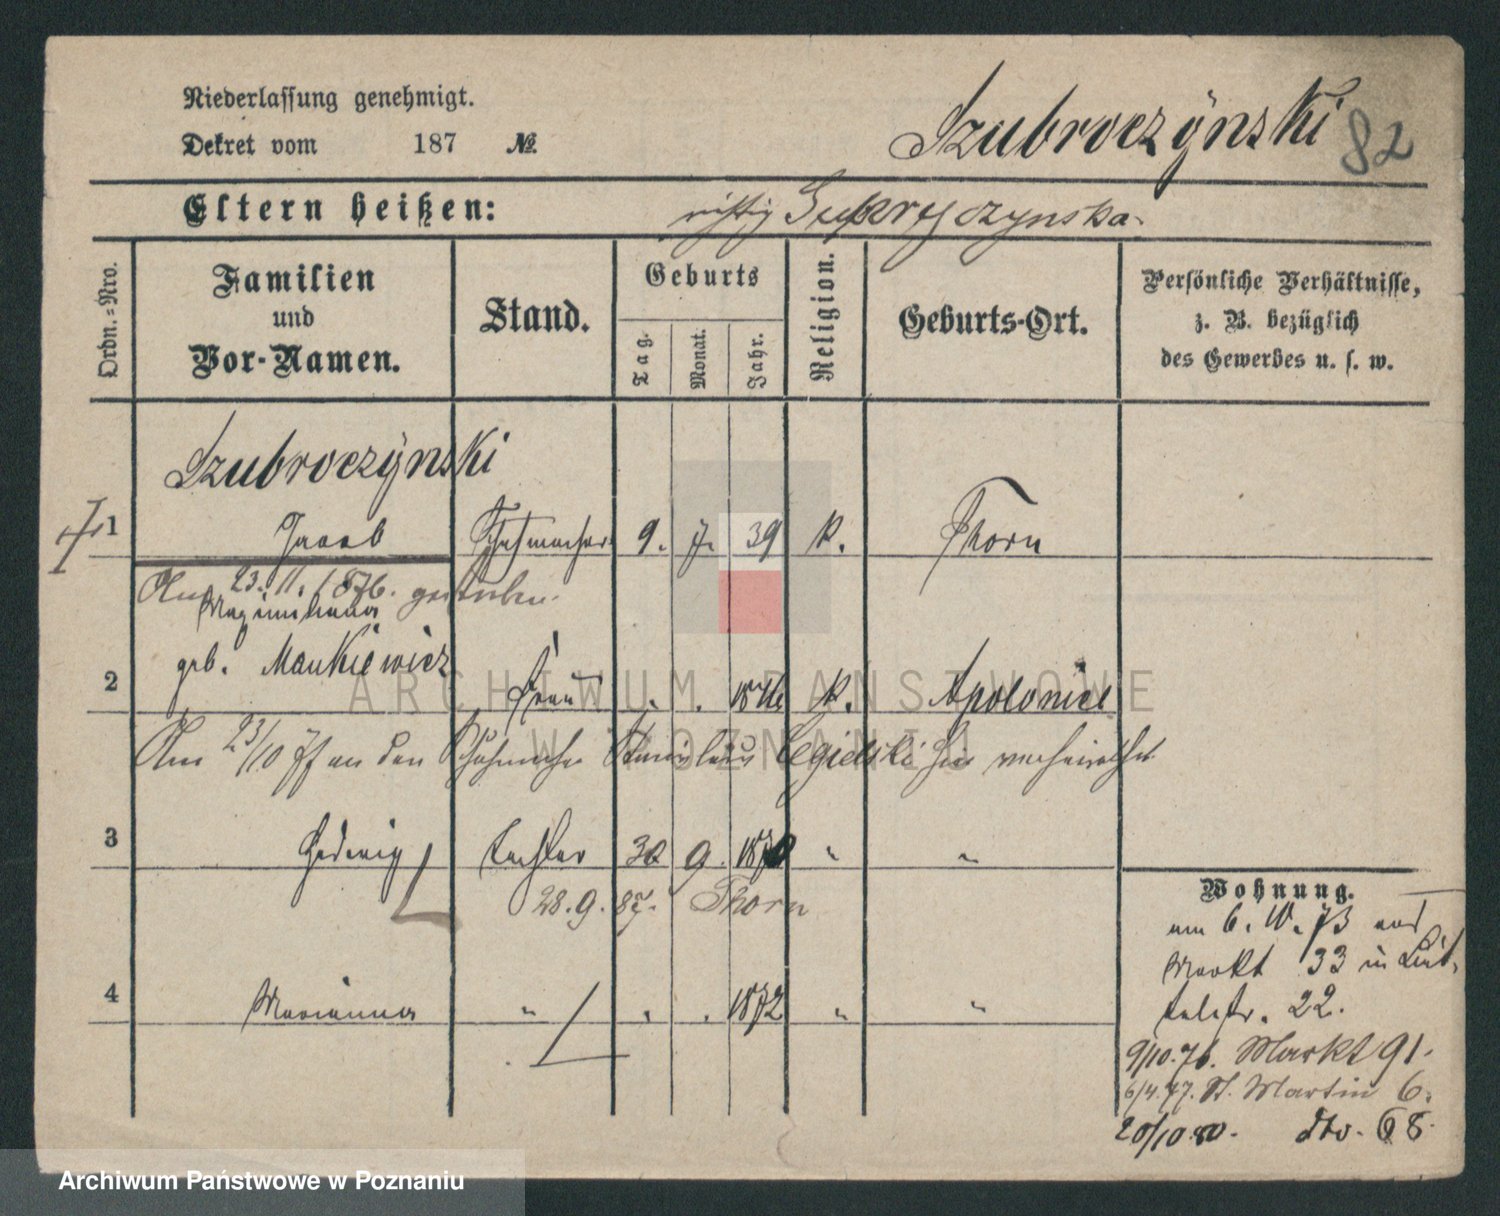 Niederlassung genehmigt.
Dekret vom 187 №
Szubroczÿnski 82
Eltern heißen: richtig
Ordn.=Nro.
Familien und Vor-Namen.
Stand.
Geburts
Tag. Monat. Jahr.
Religion.
Geburts-Ort.
Persönliche Verhältnisse,
z. B. bezüglich
des Gewerbes u. s. w.
Szubroczÿnski
1 Jacob Schuhmacher 9. 7. 39 k. Thorn
Am 23.11.1876. gestorben.
Maximiliana
geb. Mankiewicz
2 Frau . . k.
Am 23/10 77 an den Schuhmacher Stanislaus Cegielski hier verheirathet
3 Hedwig Tochter 30 9. 1870 " "
28.9.87. Thorn
4 Marianna " . . 1872 " "
Wohnung.
am 6. 10. 73 von
Markt 33 in
22.
9/10.76. Markt 91.
6/4.77. St. Martin 6.
20/10.80. dto. 68.
ARCHIWUM PAŃSTWOWE
W POZNANIU
Archiwum Państwowe w Poznaniu